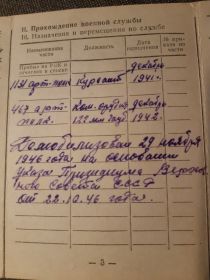 II. Прохождение военной службы
10. Назначения и перемещения по службе
Наименование части
Должность
Дата назначения
№ приказа по части
Прибыл на РоК и зачислен в списки
1151 арт. полк Курсант декабрь 1941.
467 арт. полк Ком. орудия 122 мм декабрь 1942.
Демобилизован 29 ноября
1946 года на основании
указа Президиума Верхов
ного Совета СССР
от 22.10.46 года.
— 3 —